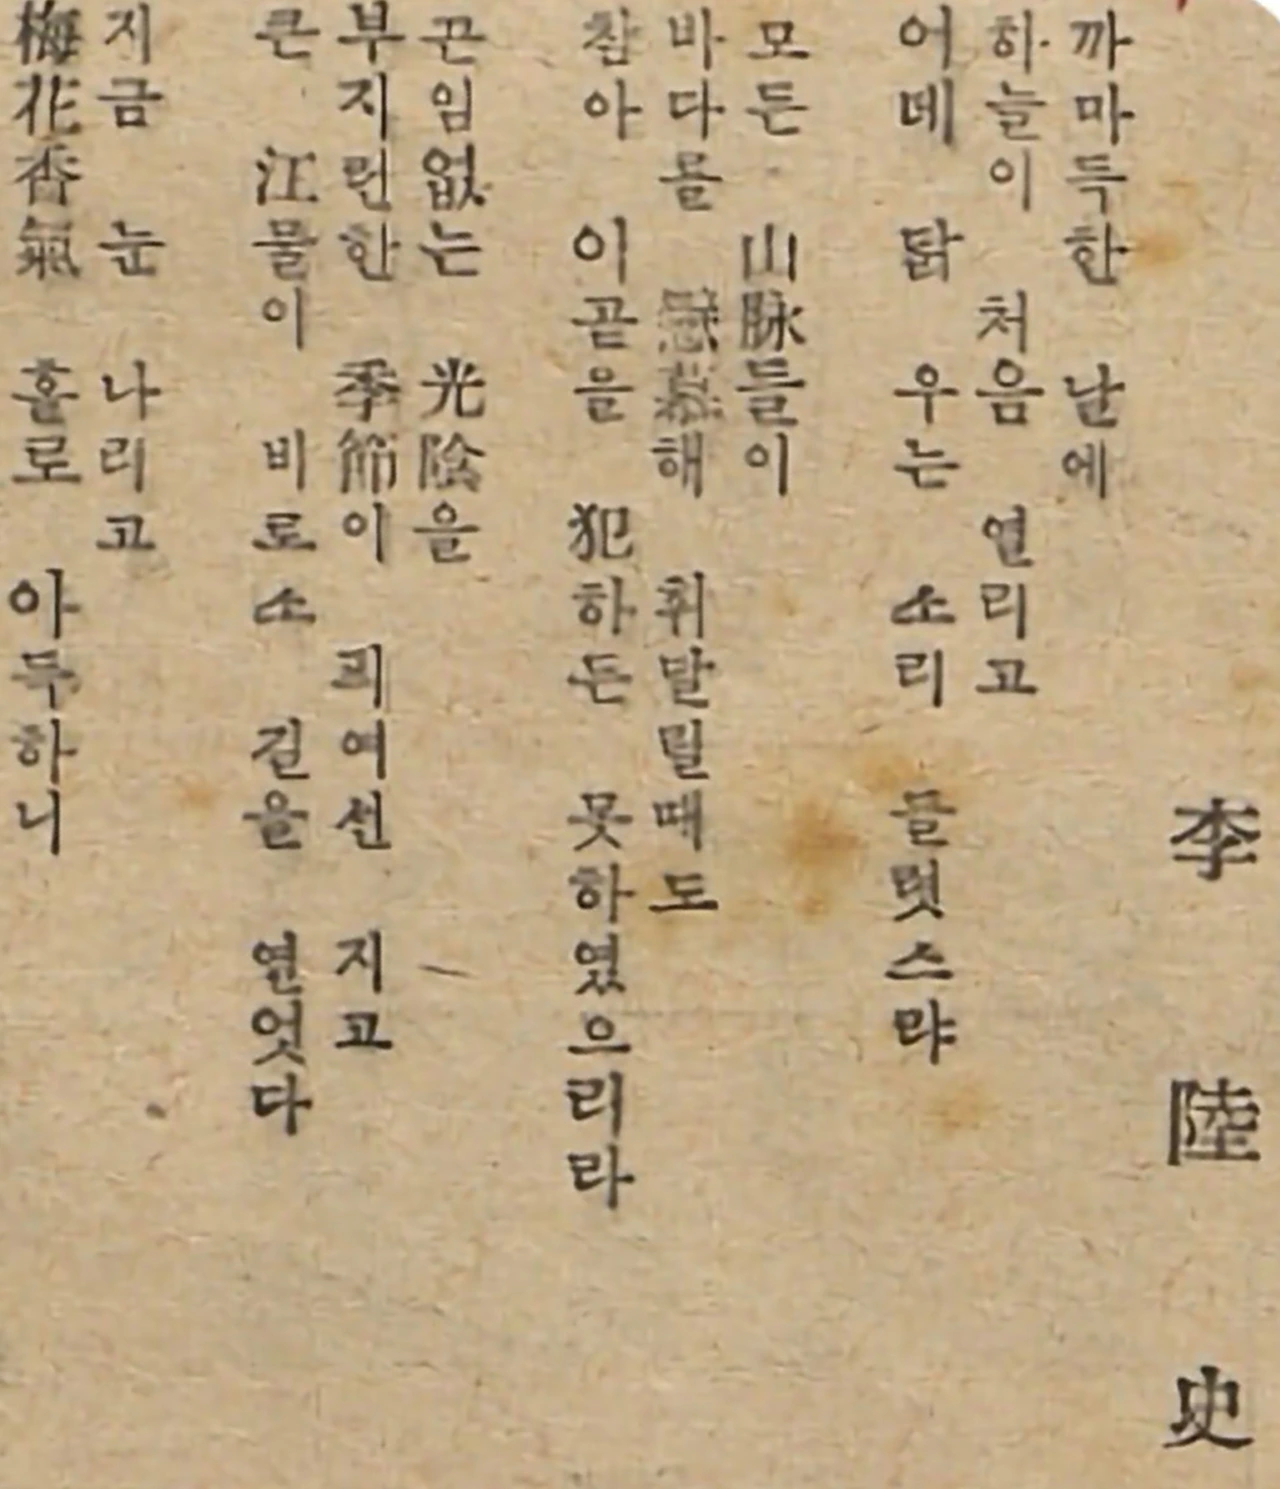 李陸史
까마득한 날에
하늘이 처음 열리고
어데 닭 우는 소리 들렷스랴
모든 山脉들이
바다를 戀慕해 휘달릴때도
참아 이곧을 犯하든 못하였으리라
끈임없는 光陰을
부지런한 季節이 픠여선 지고
큰 江물이 비로소 길을 열엇다
지금 눈 나리고
梅花香氣 홀로 아득하니